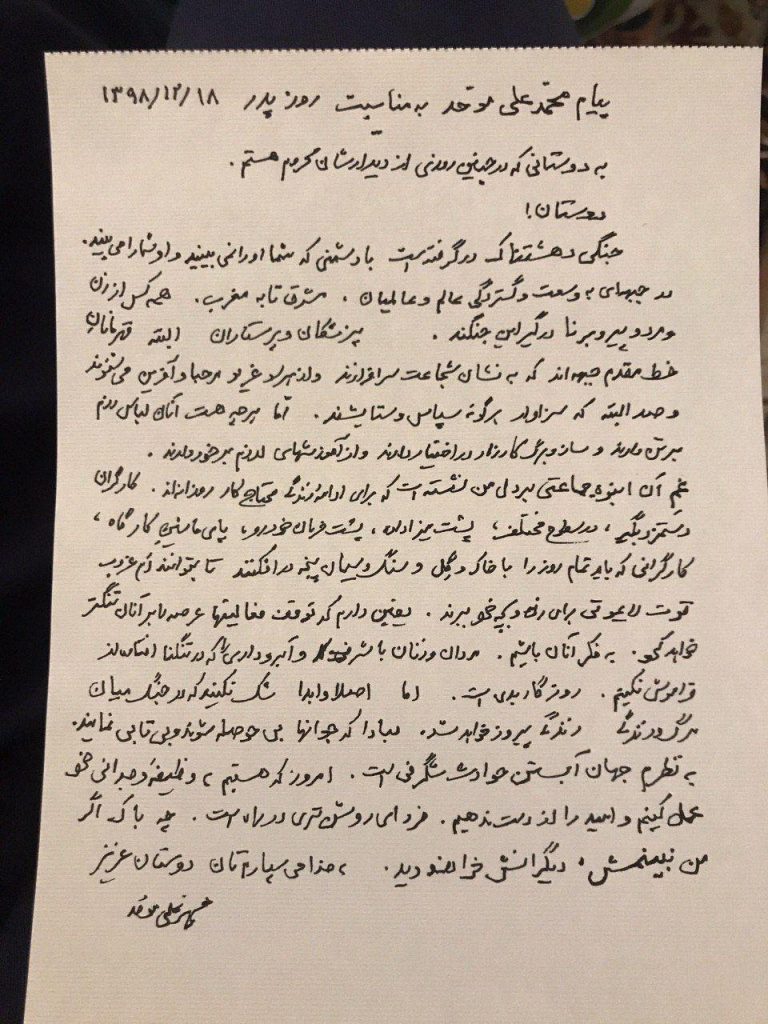 پیام محمدعلی موحد به مناسبت روز پدر ۱۳۹۸/۱۲/۱۸
به دوستانی که در چنین روزی از دیدارشان محروم هستم.
دوستان!
جنگی دهشتناک درگرفته است با دشمنی که شما او را نمی بینید و او شما را می بیند.
در جبهه‌ای به وسعت و گستردگی عالم و عالمیان. مشرق تا به مغرب. همه کس از زن
و مرد و پیر و برنا درگیر این جنگند. پزشکان و پرستاران البته قهرمانان
خط مقدم جبهه اند که به نشان شجاعت سرافرازند و از هر سو غریو مرحبا و آفرین می شنوند
و صد البته که سزاوار هرگونه سپاس و ستایشند. اما هرچه هست آنان لباس رزم
بر تن دارند و ساز و برگ کارزار در اختیار دارند و از آموزشهای لازم برخوردارند.
غم آن انبوه جماعتی بر دل من نشسته است که برای ادامه زندگی محتاج کار روزانه‌اند. کارگران
دستمزدبگیر، در سطوح مختلف، پشت میز اداره، پشت فرمان خودرو، پای ماشین کارگاه،
کارگرانی که باید تمام روز را با خاک و گل و سنگ و سیمان پنجه درافکنند تا بتوانند دم غروب
قوت لایموتی برای زن و بچه خود ببرند. یقین دارم که توقف فعالیتها عرصه را بر آنان تنگتر
خواهد کرد. به فکر آنان باشیم. مردان و زنان با شرف و آبرودار را که در تنگنا افتاده‌اند
فراموش نکنیم. روزگار بدی است. اما اصلا و ابدا شک نکنید که در جنگ میان
مرگ و زندگی زندگی پیروز خواهد شد. مبادا که جوانها بی حوصله شوند و بی تابی نمایند.
به نظرم جهان آبستن حوادث شگرفی است. امروز که هستیم به وظیفه وجدانی خود
عمل کنیم و امید را از دست ندهیم. فردای روشن تری در راه است. چه باک اگر
من نبینمش، دیگرانش خواهند دید. به خدا می سپارم تان دوستان عزیز
محمدعلی موحد